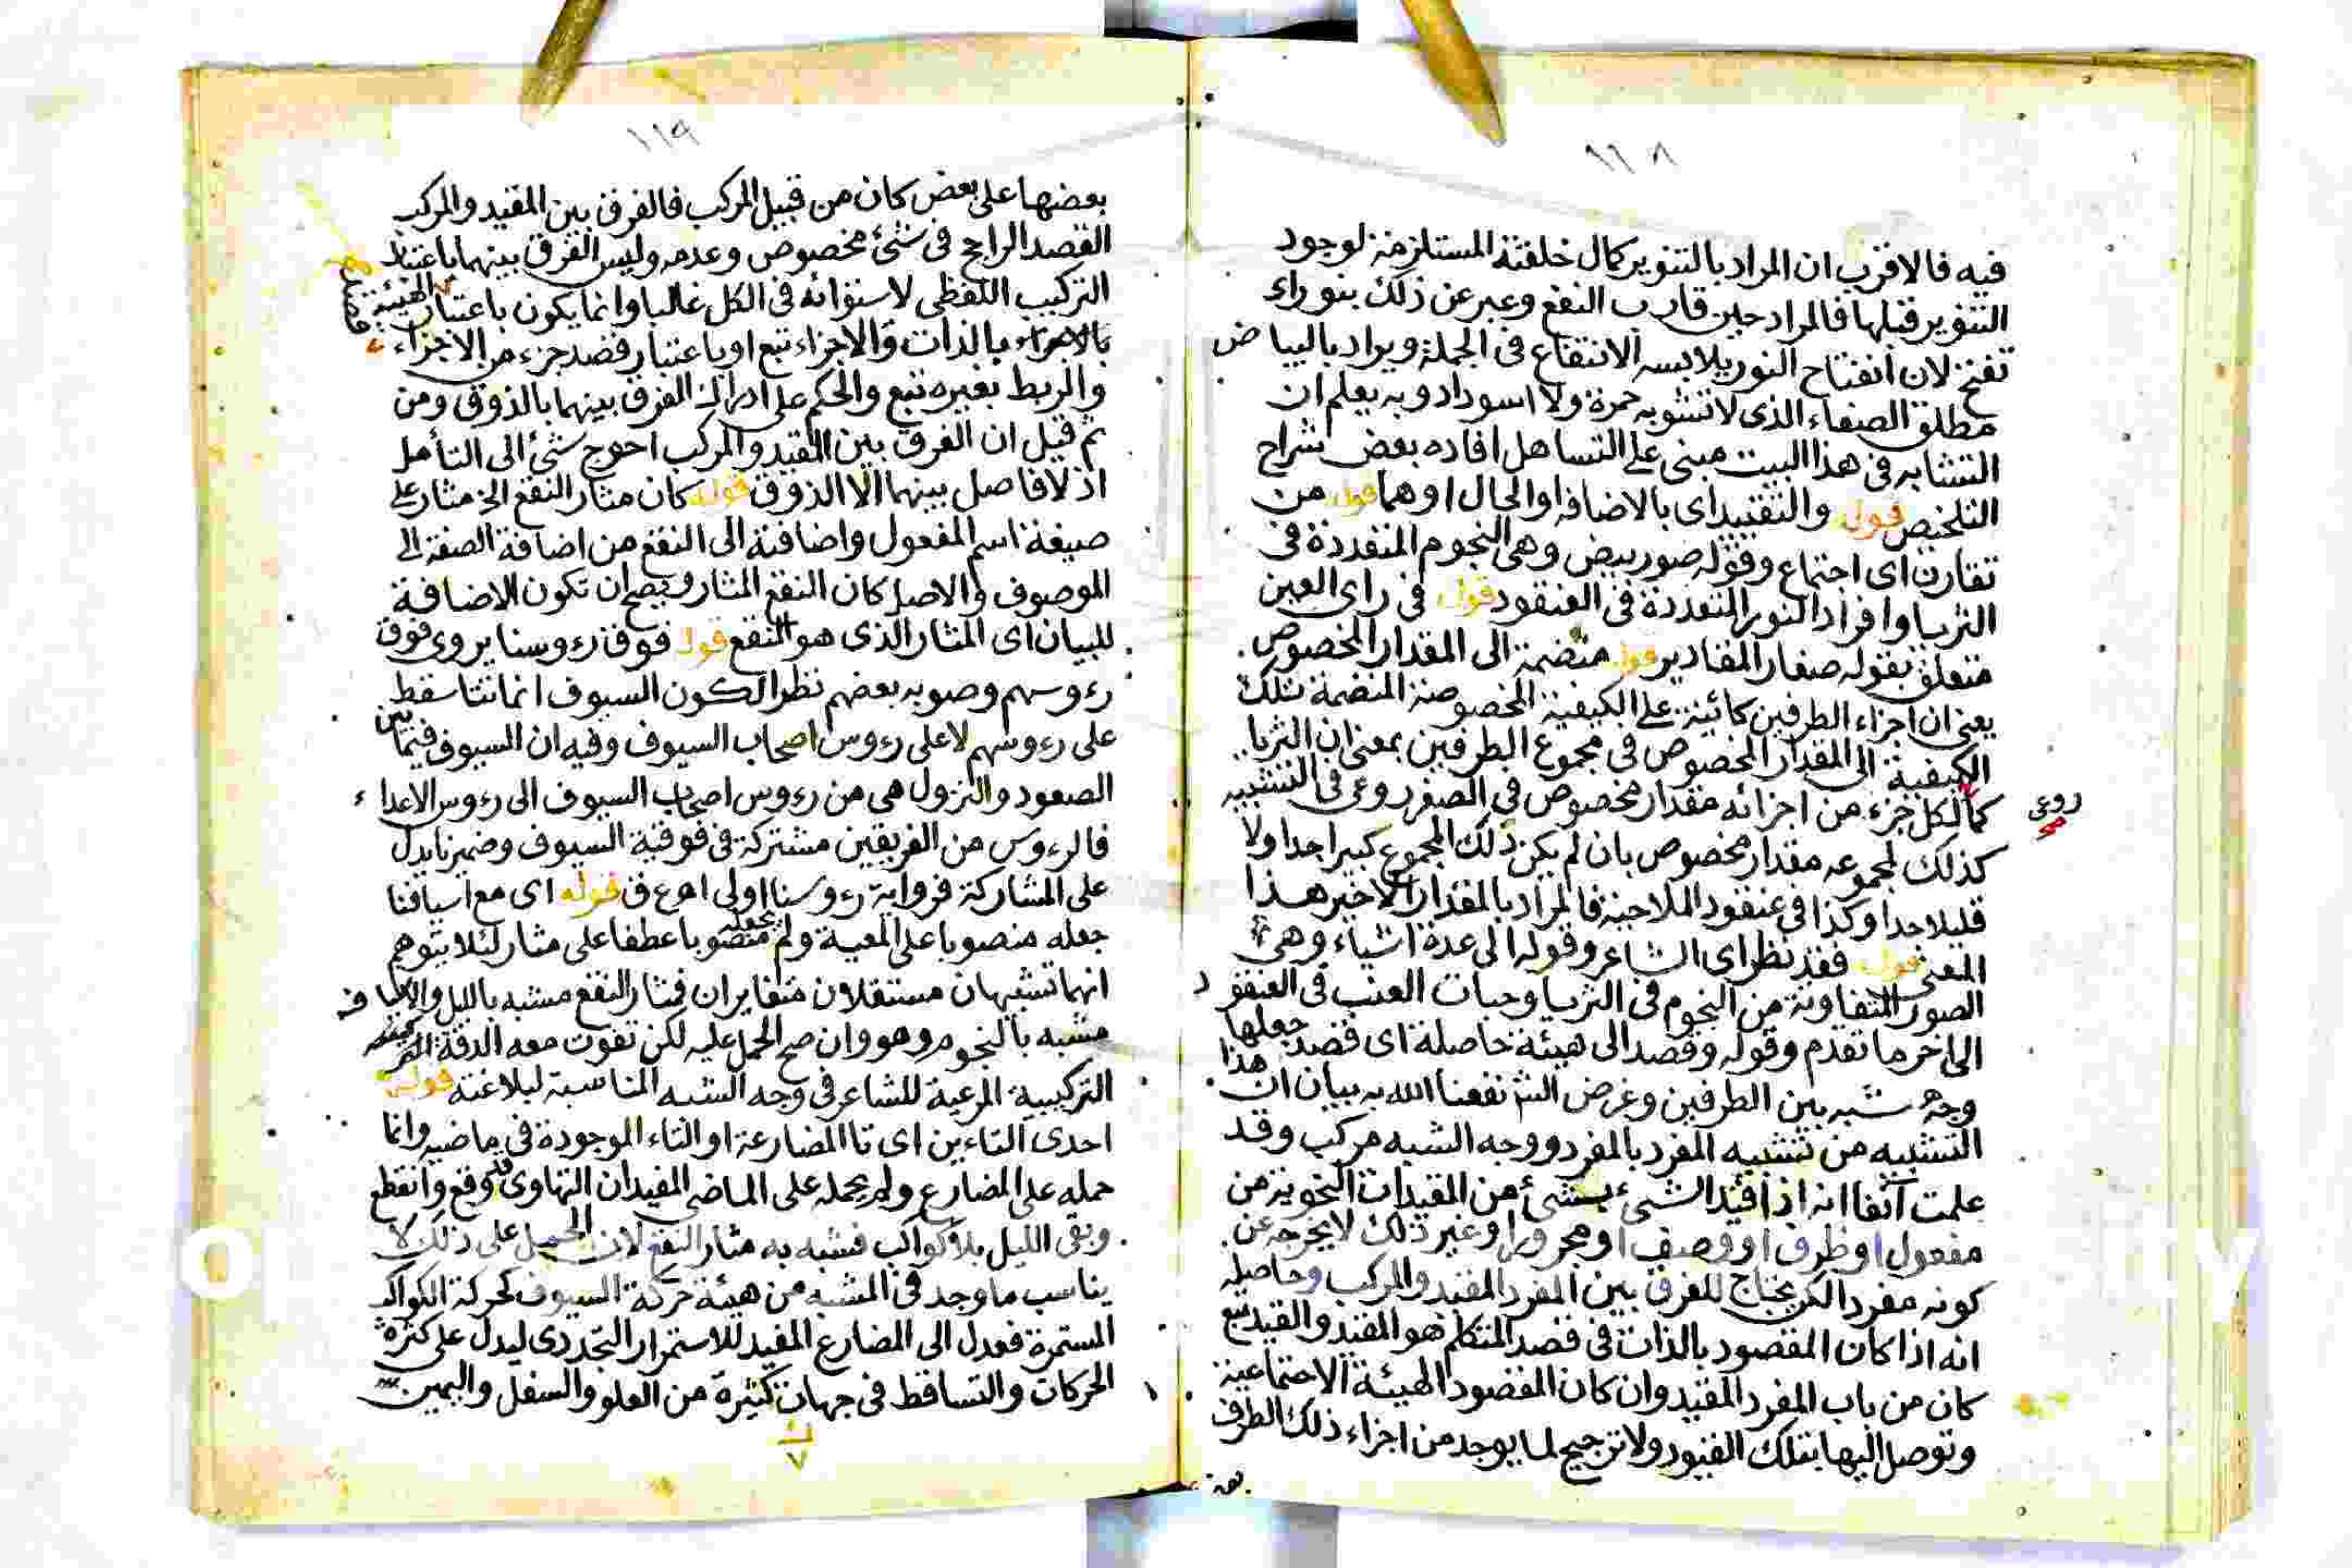 ١١٨
فيه فالاقرب ان المراد بالتنوير كمال خلقته المستلزمة لوجود
التنوير قبلها فالمراد حين قارب النفع وعبر عن ذلك بنوراء
تفتح لان انفتاح النور يلابسه الانتفاع فى الجملة ويراد بالبياض
مطلق الصفاء الذى لا تشوبه حمرة ولا اسوداد وبه يعلم ان
التشابه فى هذا البيت مبنى على التساهل افاده بعض شراح
التلخيص قوله والتقييد اى بالاضافة او الحال او هما قوله من
تقارن اى اجتماع وقوله صور بيض وهى النجوم المتعددة فى
الثريا وافراد النور المتعددة فى العنقود قوله فى راى العين
متعلق بقوله صغار المقادير قوله منضمة الى المقدار المخصوص
يعنى ان اجزاء الطرفين كائنة على الكيفية المخصوصة المنضمة تلك
الكيفية الى المقدار المخصوص فى مجموع الطرفين بمعنى ان الثريا
كما لكل جزء من اجزائه مقدار مخصوص فى الصغر روعى فى التشبيه
روعى
صح
كذلك لمجموعه مقدار مخصوص بان لم يكن ذلك المجموع كبيرا جدا ولا
قليلا جدا وكذا فى عنقود الملاحية فالمراد بالمقدار الاخير هذا
المعنى قوله فقد نظر اى الشاعر وقوله الى عدة اشياء وهى
الصور المتفاوتة من النجوم فى الثريا وحبات العنب فى العنقود
الى اخر ما تقدم وقوله وقصد الى هيئة حاصلة اى قصد جعلها
وجه شبه بين الطرفين وغرض الش نفعنا الله به بيان ان هذا
التشبيه من تشبيه المفرد بالمفرد ووجه الشبه مركب وقد
علمت آنفا انه اذا قيد الشىء بشىء من المقيدات النحوية من
مفعول او ظرف او وصف او مجرور او غير ذلك لا يخرجه عن
كونه مفردا لكن يحتاج للفرق بين المفرد المقيد والمركب وحاصله
انه اذا كان المقصود بالذات فى قصد المتكلم هو المقيد والقيد تبع
كان من باب المفرد المقيد وان كان المقصود الهيئة الاجتماعية
وتوصل اليها بتلك القيود ولا ترجيح لما يوجد من اجزاء ذلك الطرف
١١٩
بعضها على بعض كان من قبيل المركب فالفرق بين المقيد والمركب
القصد الراجح فى شئ مخصوص وعدمه وليس الفرق بينهما باعتبار
التركيب اللفظى لاستوائه فى الكل غالبا وانما يكون باعتبار الهيئة
بالذات والاجزاء تبع او باعتبار قصد جزء من الاجزاء
والربط بغيره تبع والحكم على ادراك الفرق بينهما بالذوق ومن
ثم قيل ان الفرق بين المقيد والمركب احوج شئ الى التأمل
اذ لا فاصل بينهما الا الذوق قوله كان مثار النقع الخ مثار على
صيغة اسم المفعول واضافته الى النقع من اضافة الصفة الى
الموصوف والاصل كان النقع المثار ويصح ان تكون الاضافة
للبيان اى المثار الذى هو النقع قوله فوق رءوسنا يروى فوق
رءوسهم وصوبه بعضهم نظرا لكون السيوف انما تتساقط
على رءوسهم لا على رءوس اصحاب السيوف وفيه ان السيوف فيما بين
الصعود والنزول هى من رءوس اصحاب السيوف الى رءوس الاعداء
فالرءوس من الفريقين مشتركة فى فوقية السيوف وضمير نا يدل
على المشاركة فرواية رءوسنا اولى اه ع ق قوله اى مع اسيافنا
جعله منصوبا على المعية ولم يجعله منصوبا عطفا على مثار لئلا يتوهم
انهما تشبيهان مستقلان متغايران فمثار النقع مشبه بالليل والاسياف
مشبه بالنجوم وهو وان صح الحمل عليه لكن تفوت معه الدقة
التركيبية المرعية للشاعر فى وجه الشبه المناسبة لبلاغته قوله
احدى التاءين اى تا المضارعة او التاء الموجودة فى ماضيه وانما
حمله على المضارع ولم يحمله على الماضى المفيد ان التهاوى قد وقع وانقطع
وبقى الليل بلا كواكب فشبه به مثار النقع لان الحمل على ذلك لا
يناسب ما وجد فى المشبه من هيئة حركة السيوف كحركة الكواكب
المستمرة فعدل الى المضارع المفيد للاستمرار التجددى ليدل على كثرة
الحركات والتساقط فى جهات كثيرة من العلو والسفل واليمين